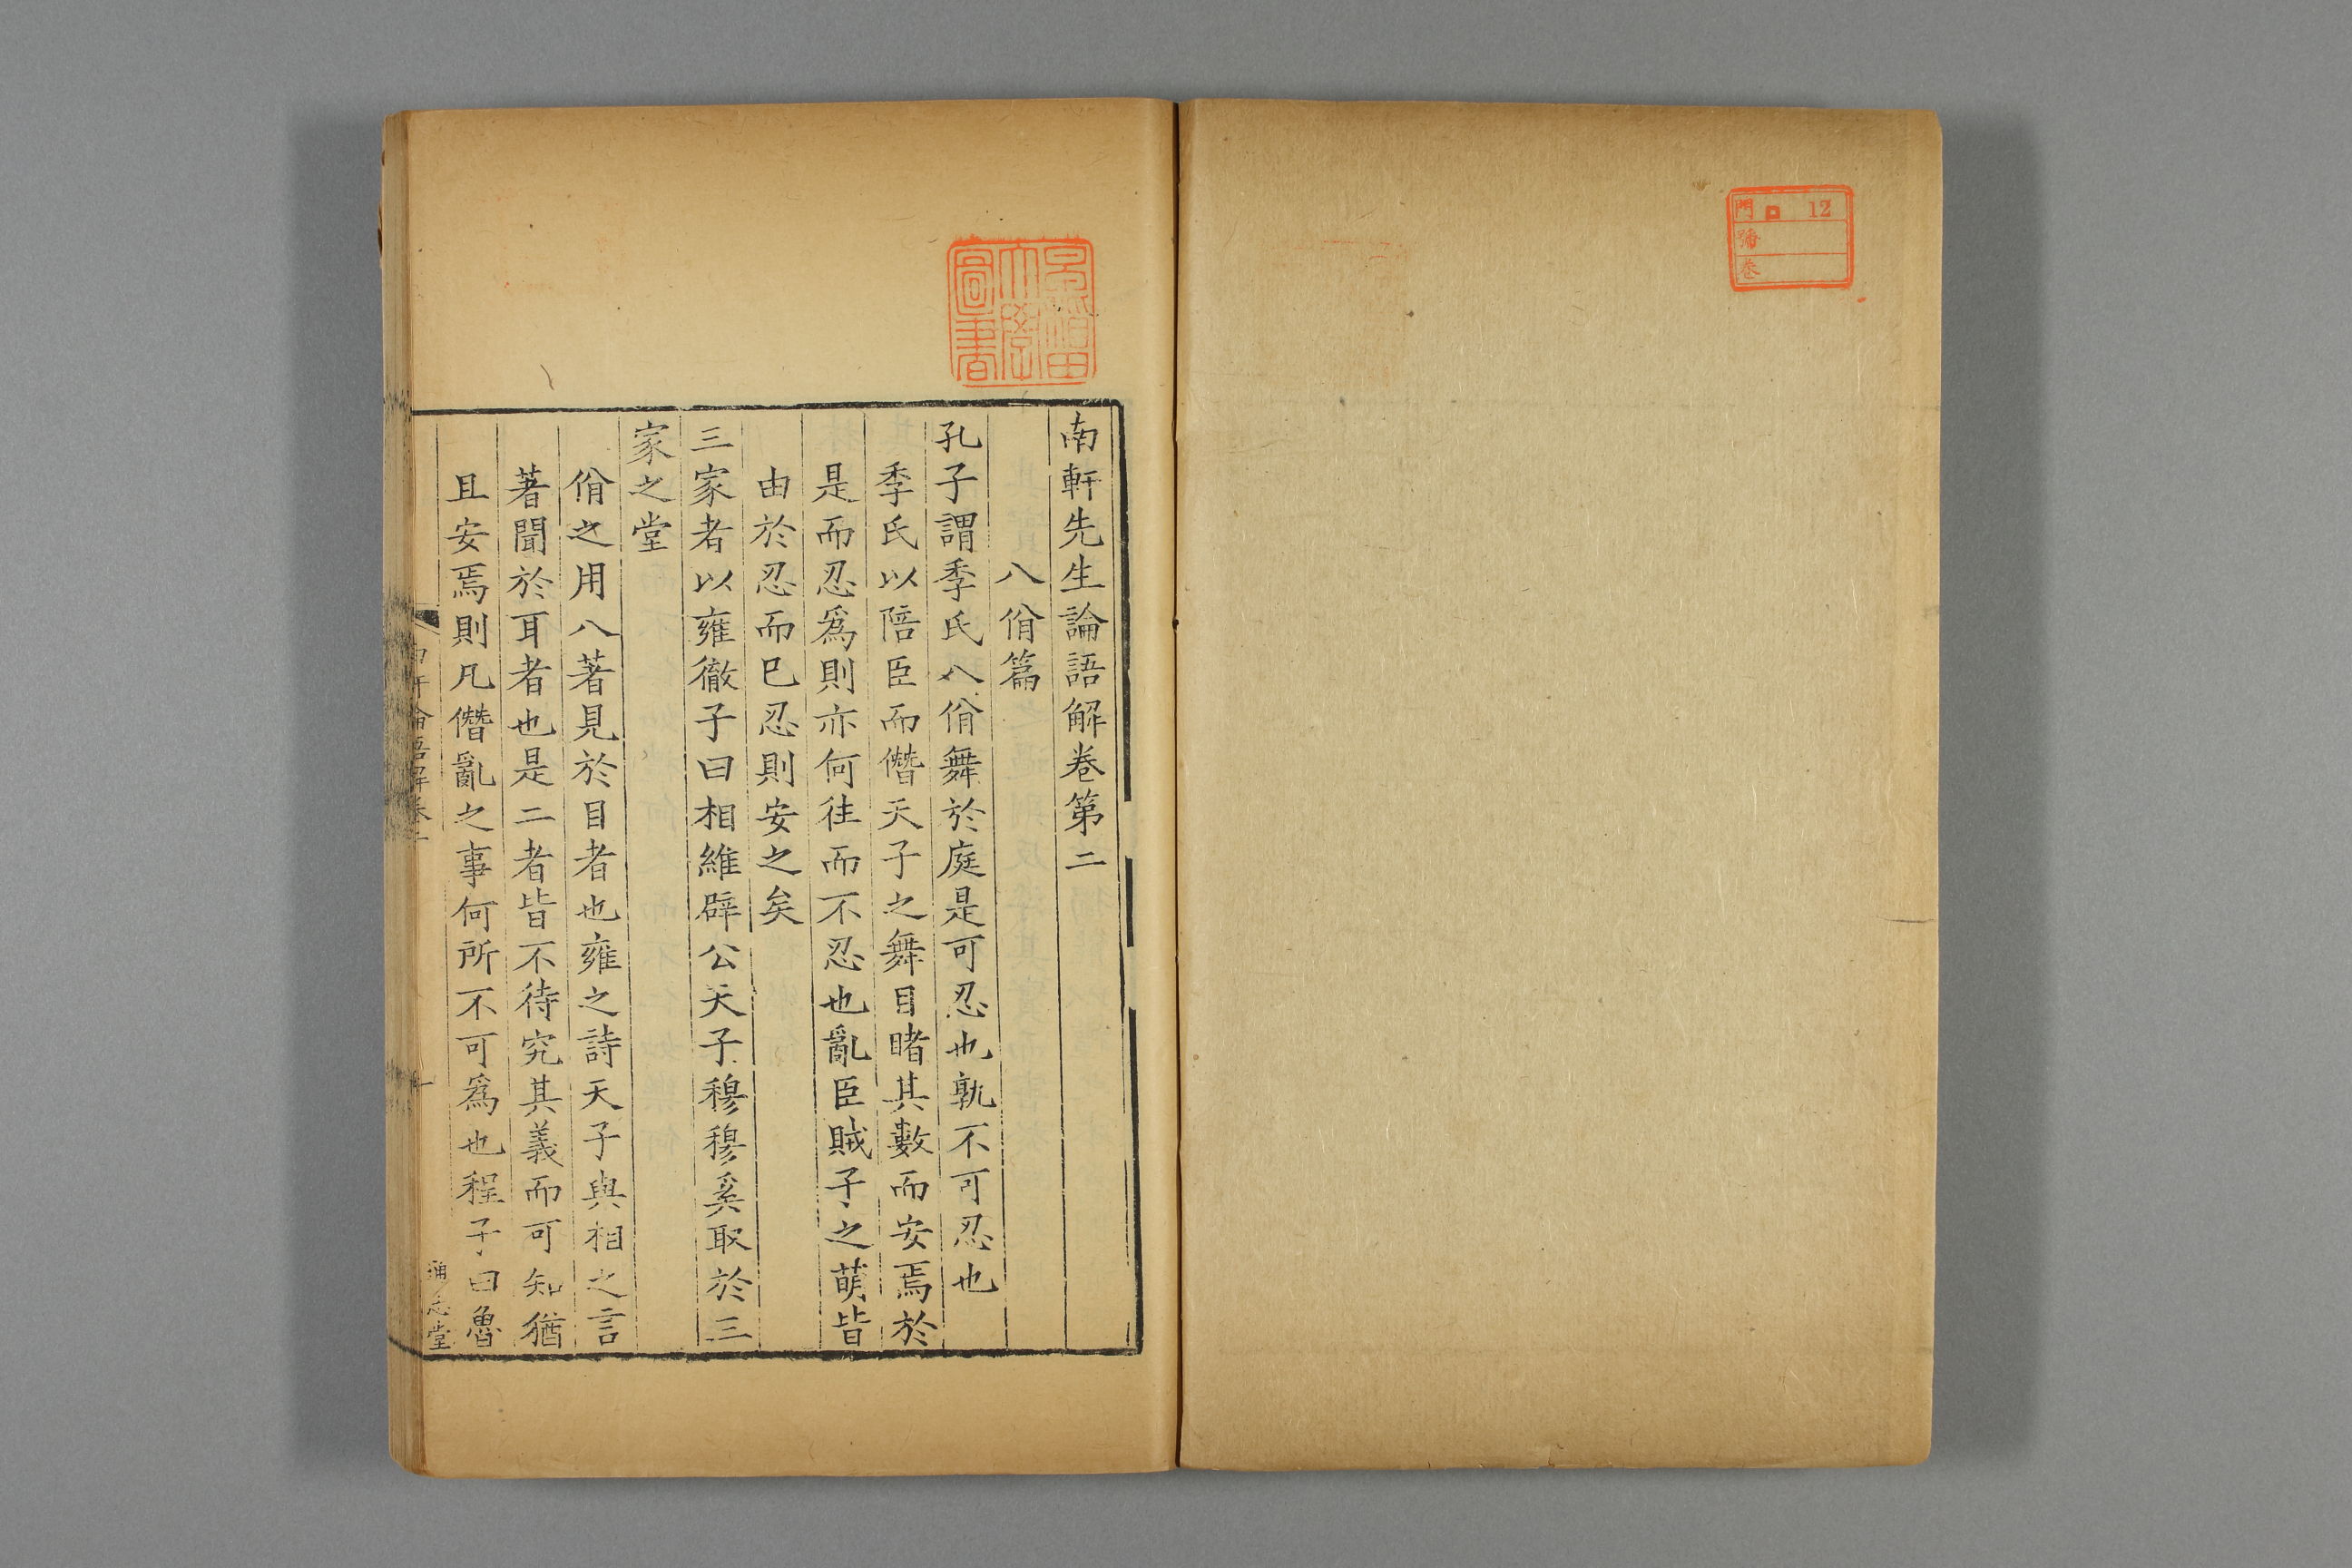 門 ロ 12
號
卷
早稲田
大學
圖書
南軒先生論語解卷第二
八佾篇
孔子謂季氏八佾舞於庭是可忍也孰不可忍也
季氏以陪臣而僭天子之舞目睹其數而安焉於
是而忍爲則亦何徃而不忍也亂臣賊子之萌皆
由於忍而已忍則安之矣
三家者以雍徹子曰相維辟公天子穆穆奚取於三
家之堂
佾之用八著見於目者也雍之詩天子與相之言
著聞於耳者也是二者皆不待究其義而可知猶
且安焉則凡僭亂之事何所不可爲也程子曰魯
通志堂